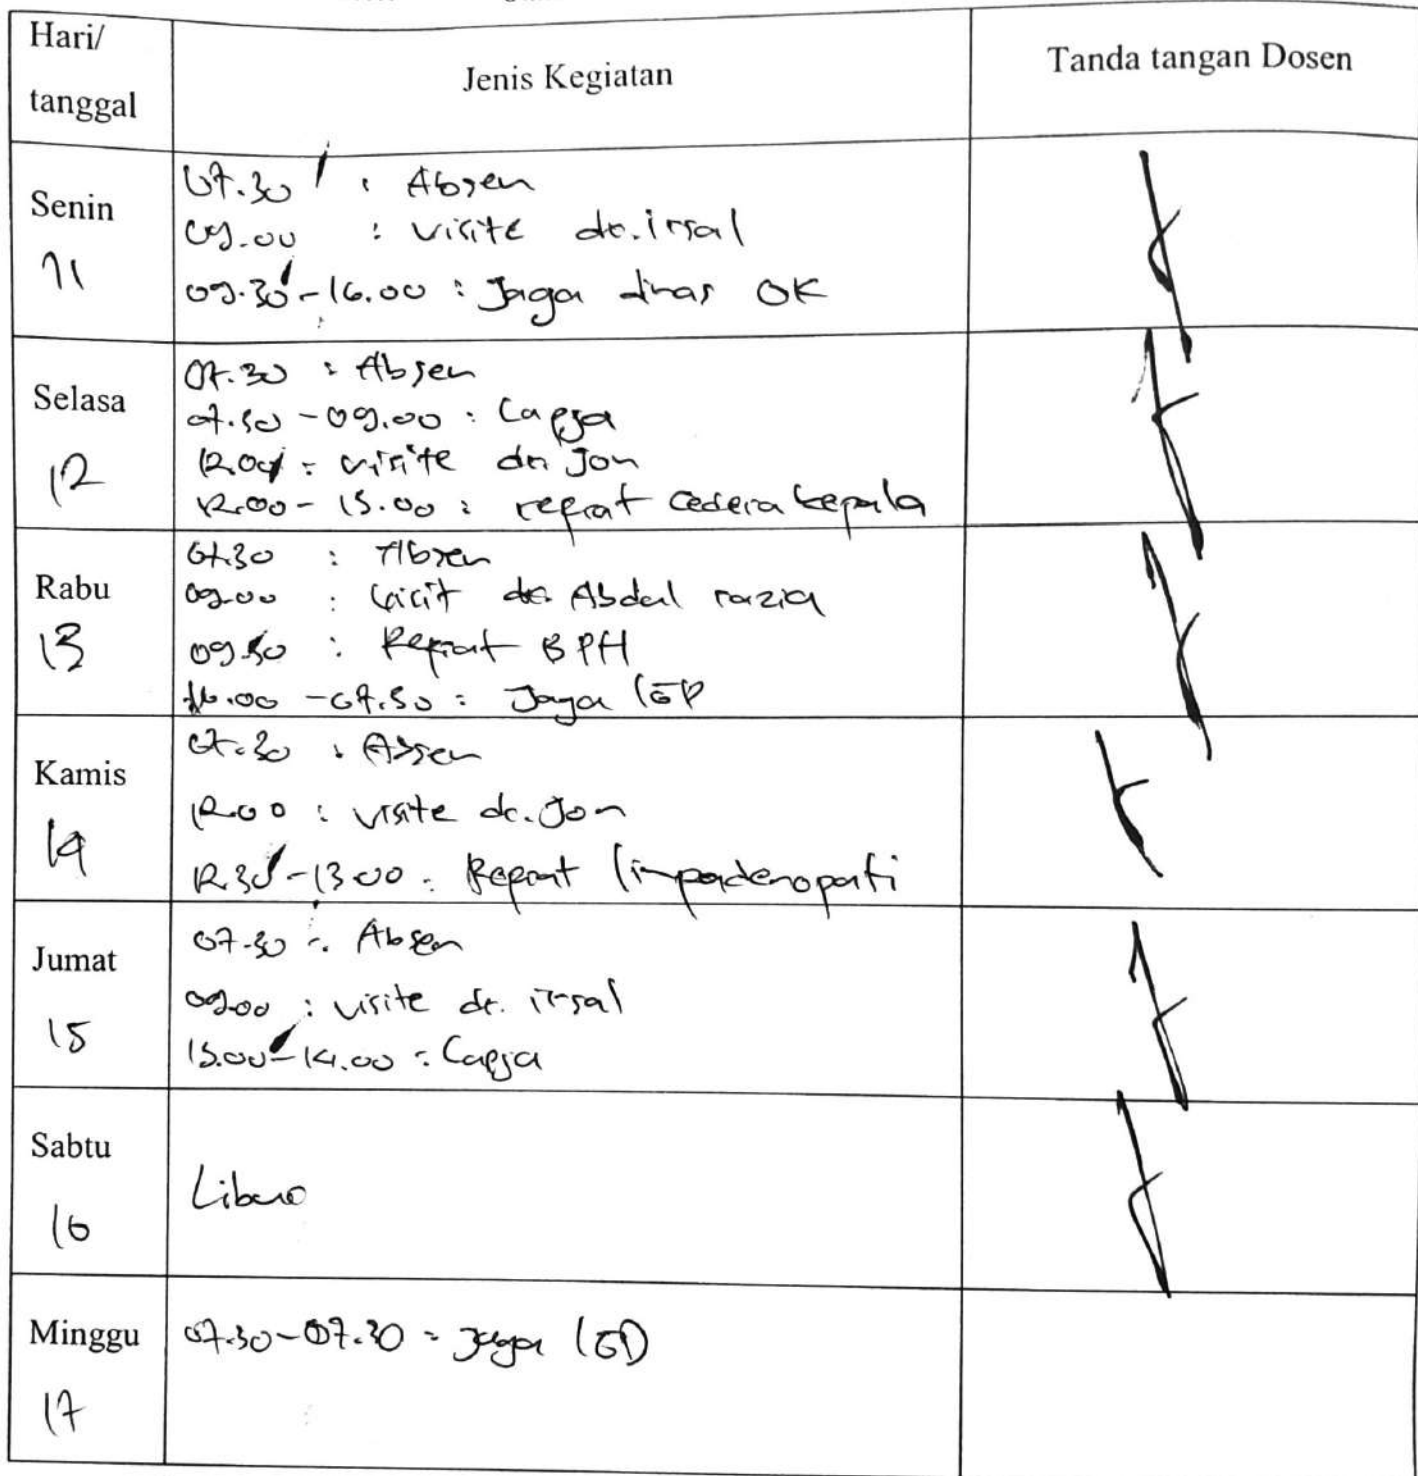 Hari/
tanggal
Jenis Kegiatan
Tanda tangan Dosen
Senin
11
07.30 : Absen
09.00 : visite dr. irsal
09.30-16.00 : Jaga dinas OK
Selasa
12
07.30 : Absen
07.30-09.00 : Capja
12.00 : visite dr Jon
12.00-15.00 : refrat cedera kepala
Rabu
13
07.30 : Absen
09.00 : visit dr. Abdul razia
09.30 : Refrat BPH
16.00-07.30 : Jaga IGD
Kamis
14
07.30 : Absen
12.00 : visite dr. Jon
12.30-13.00 : Refrat limpadenopati
Jumat
15
07.30 : Absen
09.00 : visite dr. irsal
13.00-14.00 : Capja
Sabtu
16
Minggu
17
07.30-07.30 : jaga IGD